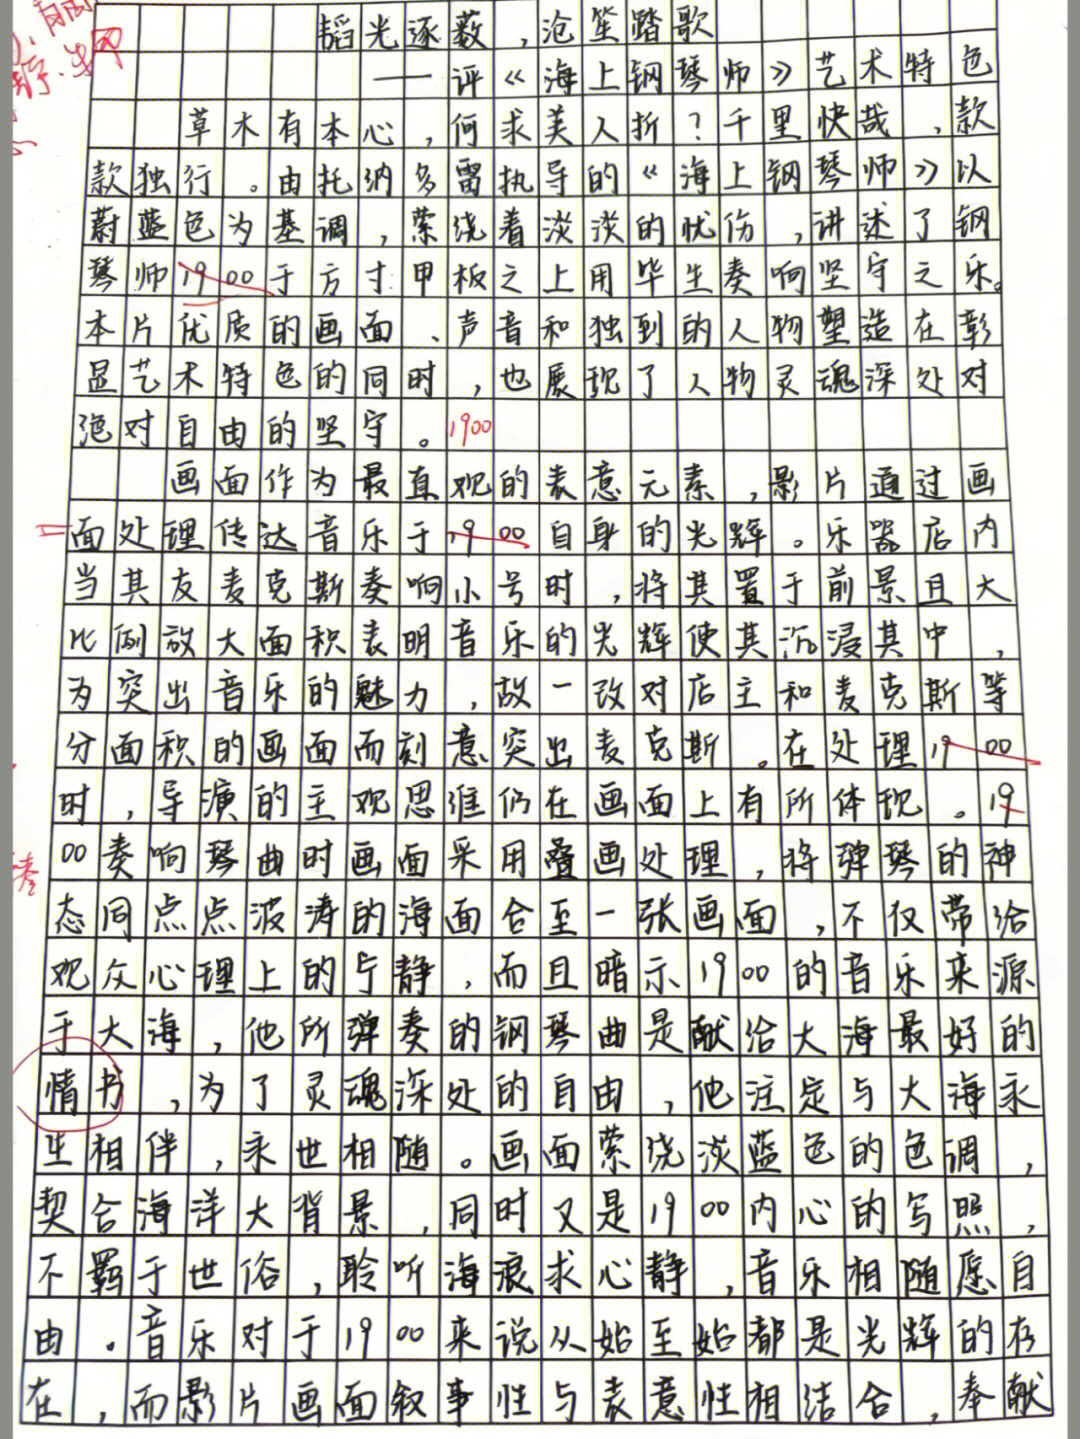 韬光逐薮，沧笙踏歌
——评《海上钢琴师》艺术特色
草木有本心，何求美人折？千里快哉，款
款独行。由托纳多雷执导的《海上钢琴师》以
蔚蓝色为基调，萦绕着淡淡的忧伤，讲述了钢
琴师1900于方寸甲板之上用毕生奏响坚守之乐。
本片优质的画面、声音和独到的人物塑造在彰
显艺术特色的同时，也展现了人物灵魂深处对
绝对自由的坚守。1900
画面作为最直观的表意元素，影片通过画
面处理传达音乐于1900自身的光辉。乐器店内
当其友麦克斯奏响小号时，将其置于前景且大
比例放大面积表明音乐的光辉使其沉浸其中，
为突出音乐的魅力，故一改对店主和麦克斯等
分面积的画面而刻意突出麦克斯。在处理1900
时，导演的主观思维仍在画面上有所体现。19
00奏响琴曲时画面采用叠画处理，将弹琴的神
态同点点波涛的海面合至一张画面，不仅带给
观众心理上的宁静，而且暗示1900的音乐来源
于大海，他所弹奏的钢琴曲是献给大海最好的
情书，为了灵魂深处的自由，他注定与大海永
生相伴，永世相随。画面萦绕淡蓝色的色调，
契合海洋大背景，同时又是1900内心的写照，
不羁于世俗，聆听海浪求心静，音乐相随愿自
由。音乐对于1900来说从始至始都是光辉的存
在，而影片画面叙事性与表意性相结合，奉献